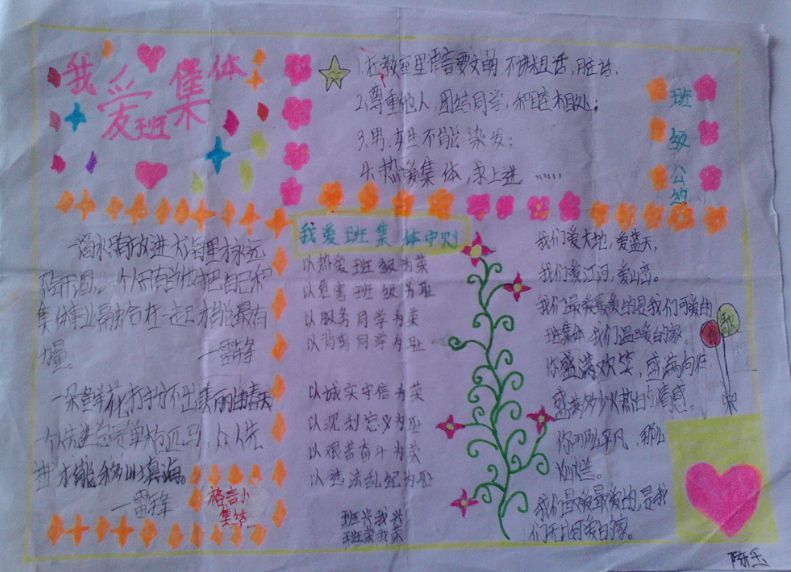 我爱班集体
1.在教室里语言要文明,不讲粗话,脏话.
2.尊重他人,团结同学,和睦相处;
3.男,女生不能染发;
4.热爱集体,求上进……
班级公约
一滴水只有放进大海里才永远
不会干涸。一个人只有当他把自己和
集体事业融合在一起才能最有
力量。
—雷锋
一朵鲜花打扮不出美丽的春天
一个人先进总是单枪匹马,众人先
进才能移山填海。
—雷锋
格言小
集锦
我爱班集体守则
以热爱班级为荣
以危害班级为耻
以服务同学为荣
以背离同学为耻
以诚实守信为荣
以见利忘义为耻
以艰苦奋斗为荣
以违法乱纪为耻
班兴我兴
班荣我荣
我们爱大地,爱蓝天,
我们爱江河,爱山峦。
我们最爱最爱的是我们可爱的
班集体,我们温暖的家。
你盛满欢笑,盛满向往
盛满多少火热的情感。
你那么平凡,那么
灿烂。
我们最爱最爱的,是我
们无比可爱的家。
陈玉